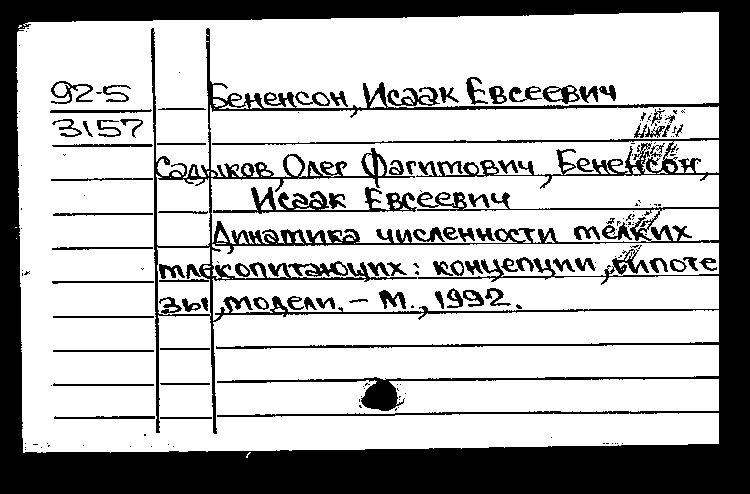 92-5 Бененсон, Исаак Евсеевич
3157
Садыков, Олег Фагитович, Бененсон,
Исаак Евсеевич
Динамика численности мелких
млекопитающих: концепции, гипоте
зы, модели. – М., 1992.